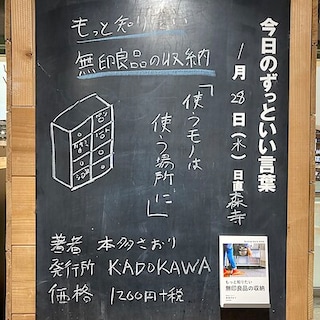 今日のずっといい言葉
1月28日(水) 日直 森寺
もっと知りたい
無印良品の収納
「使うモノは
使う場所に」
著者 本多さおり
発行所 KADOKAWA
価格 1200円+税
もっと知りたい
無印良品の収納